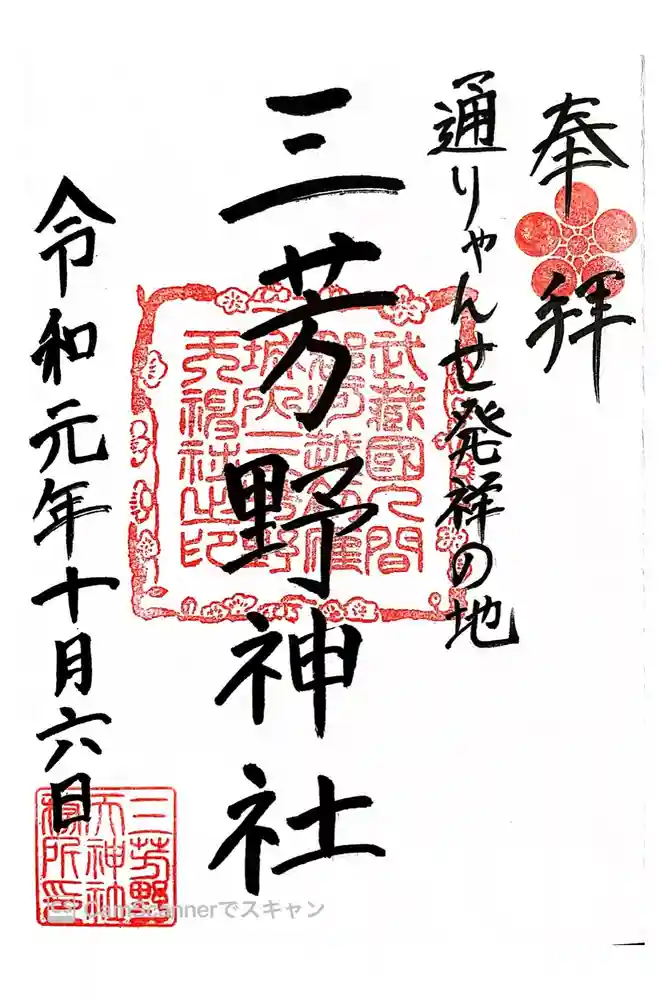 奉拝
通りゃんせ発祥の地
三芳野神社
武蔵國入間
天神社之印
令和元年十月六日
三芳野
天神社
務所印
CamScannerでスキャン